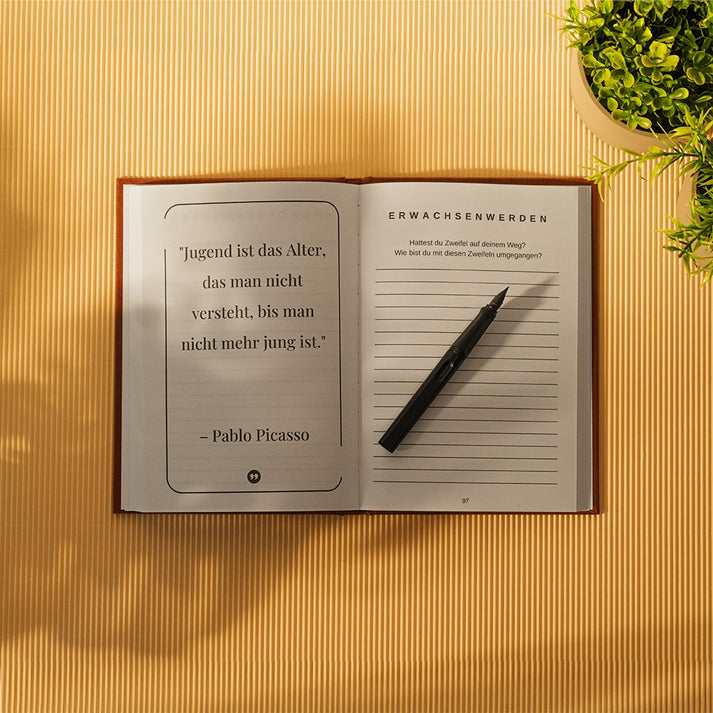 "Jugend ist das Alter,
das man nicht
versteht, bis man
nicht mehr jung ist."
– Pablo Picasso
ERWACHSENWERDEN
Hattest du Zweifel auf deinem Weg?
Wie bist du mit diesen Zweifeln umgegangen?
97